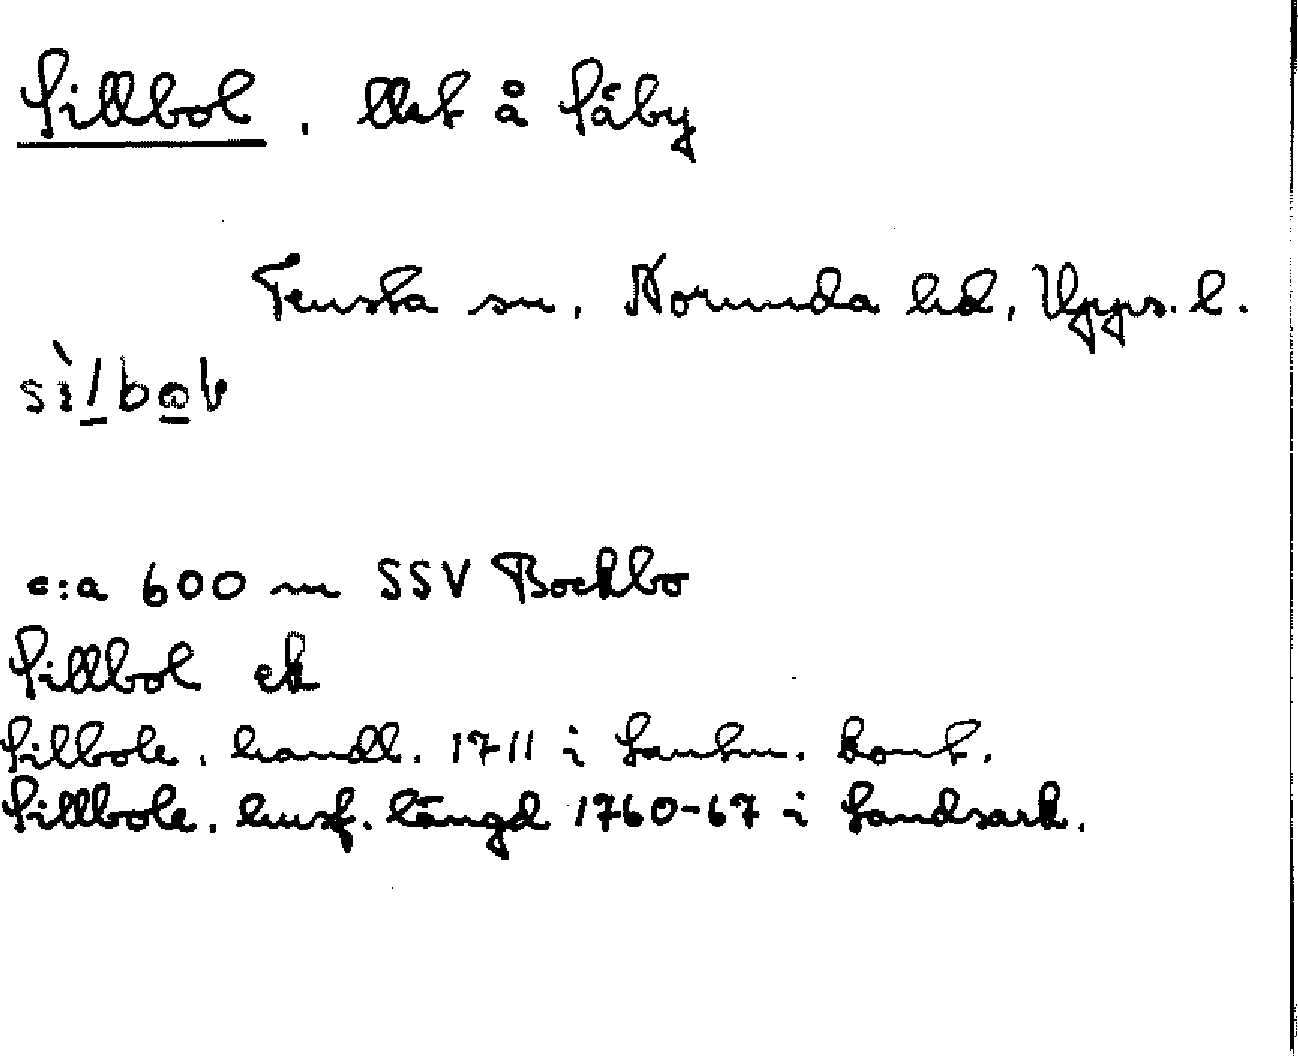 Sillbol, lht å Säby
Tensta sn, Norunda hd, Upps. l.
c:a 600 m SSV Bockbo
Sillbol ek
Silbole, handl. 1711 i Lantm. kont.
Sillbole, husf. längd 1760-67 i Landsark.